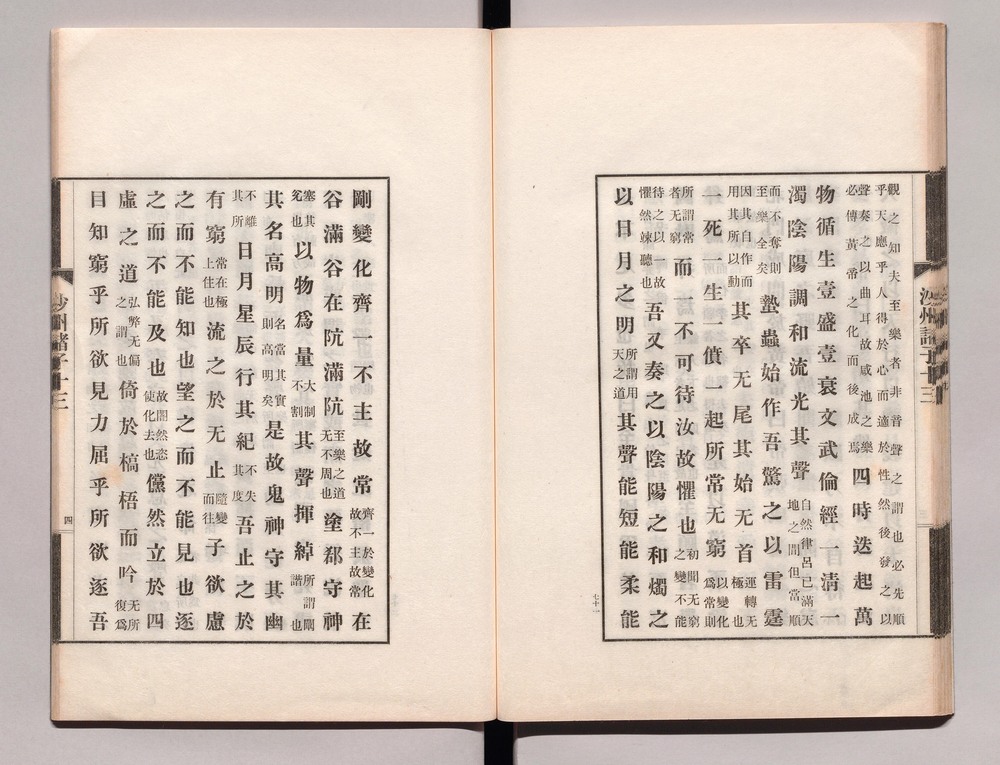 觀之知夫至樂者非音聲之謂也必先順
乎天應乎人得於心而適於性然後發之以
聲奏之以曲耳故咸池之樂必傳黃帝之化而後成焉四時迭起萬
物循生壹盛壹衰文武倫經一清一
濁陰陽調和流光其聲自然律呂已滿天地之間但當順
而不奪則至樂全矣蟄蟲始作吾驚之以雷霆
因其自作而用其所以動其卒无尾其始无首運轉无極也
一死一生一僨一起所常无窮以變化爲常則
所謂常者无窮而一不可待汝故懼也初聞无窮之變不能
待之以一故懼然竦聽也吾又奏之以陰陽之和燭之
以日月之明所謂用天之道其聲能短能柔能
七十一
剛變化齊一不主故常齊一於變化故不主故常在
谷滿谷在阬滿阬至樂之道无不周也塗郄守神
塞其兊也以物爲量大制不割其聲揮綽所謂闡諧也
其名高明名當其實則高明矣是故鬼神守其幽
不離其所日月星辰行其紀不失其度吾止之於
有窮常在極上住也流之於无止隨變而往子欲慮
之而不能知也望之而不能見也逐
之而不能及也故闇然恣使化去也儻然立於四
虛之道弘弊无偏之謂也倚於槁梧而吟无所復爲
目知窮乎所欲見力屈乎所欲逐吾
沙州諸子十三
四